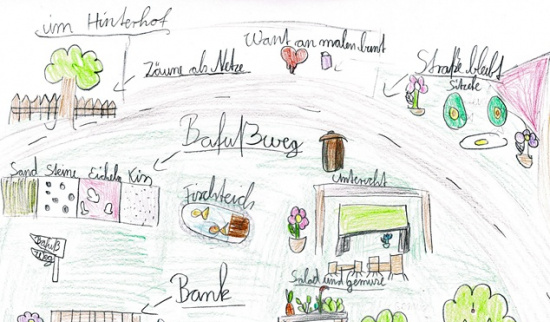 im Hinterhof
Want an malen bunt
Zäune als Netze
Straße bleibt
Sitzecke
Bafußweg
Sand Steine Eicheln Kis
Fischteich
Unterricht
Bafuß
Weg
Bank
Salad und gemüse